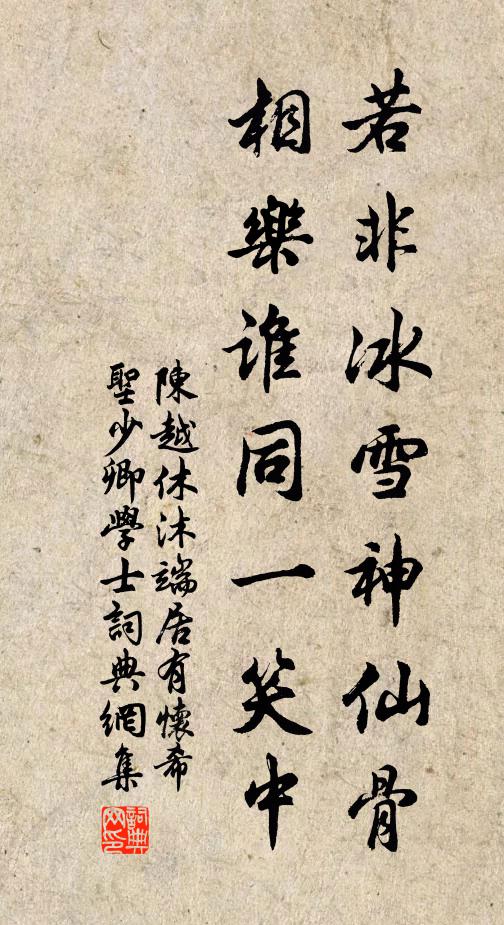 若非冰雪神仙骨
相樂誰同一笑中
陳越休沐端居有懷希
聖少卿學士詞典網集
詞典网印